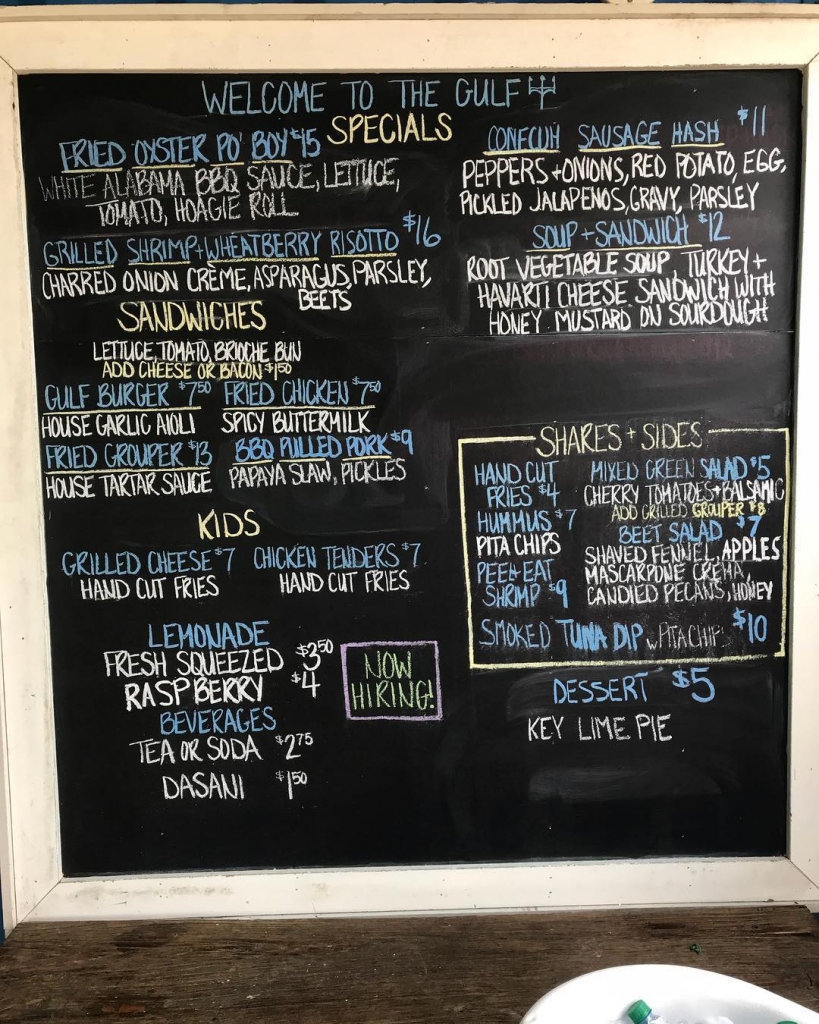 WELCOME TO THE GULF
SPECIALS
FRIED OYSTER PO' BOY $15
WHITE ALABAMA BBQ SAUCE, LETTUCE,
TOMATO, HOAGIE ROLL
GRILLED SHRIMP+WHEATBERRY RISOTTO $16
CHARRED ONION CRÈME, ASPARAGUS, PARSLEY,
BEETS
CONECUH SAUSAGE HASH $11
PEPPERS+ONIONS, RED POTATO, EGG,
PICKLED JALAPENOS, GRAVY, PARSLEY
SOUP+SANDWICH $12
ROOT VEGETABLE SOUP, TURKEY+
HAVARTI CHEESE SANDWICH WITH
HONEY MUSTARD ON SOURDOUGH
SANDWICHES
LETTUCE, TOMATO, BRIOCHE BUN
ADD CHEESE OR BACON $1.50
GULF BURGER $7.50 FRIED CHICKEN $7.50
HOUSE GARLIC AIOLI SPICY BUTTERMILK
FRIED GROUPER $13 BBQ PULLED PORK $9
HOUSE TARTAR SAUCE PAPAYA SLAW, PICKLES
KIDS
GRILLED CHEESE $7 CHICKEN TENDERS $7
HAND CUT FRIES HAND CUT FRIES
LEMONADE
FRESH SQUEEZED $3.50
RASPBERRY $4
BEVERAGES
TEA OR SODA $2.75
DASANI $1.50
NOW
HIRING!
SHARES + SIDES
HAND CUT
FRIES $4
HUMMUS $7
PITA CHIPS
PEEL+EAT
SHRIMP $9
MIXED GREEN SALAD $5
CHERRY TOMATOES+BALSAMIC
ADD GRILLED GROUPER $8
BEET SALAD $7
SHAVED FENNEL, APPLES
MASCARPONE CREMA,
CANDIED PECANS, HONEY
SMOKED TUNA DIP w/PITA CHIPS $10
DESSERT $5
KEY LIME PIE